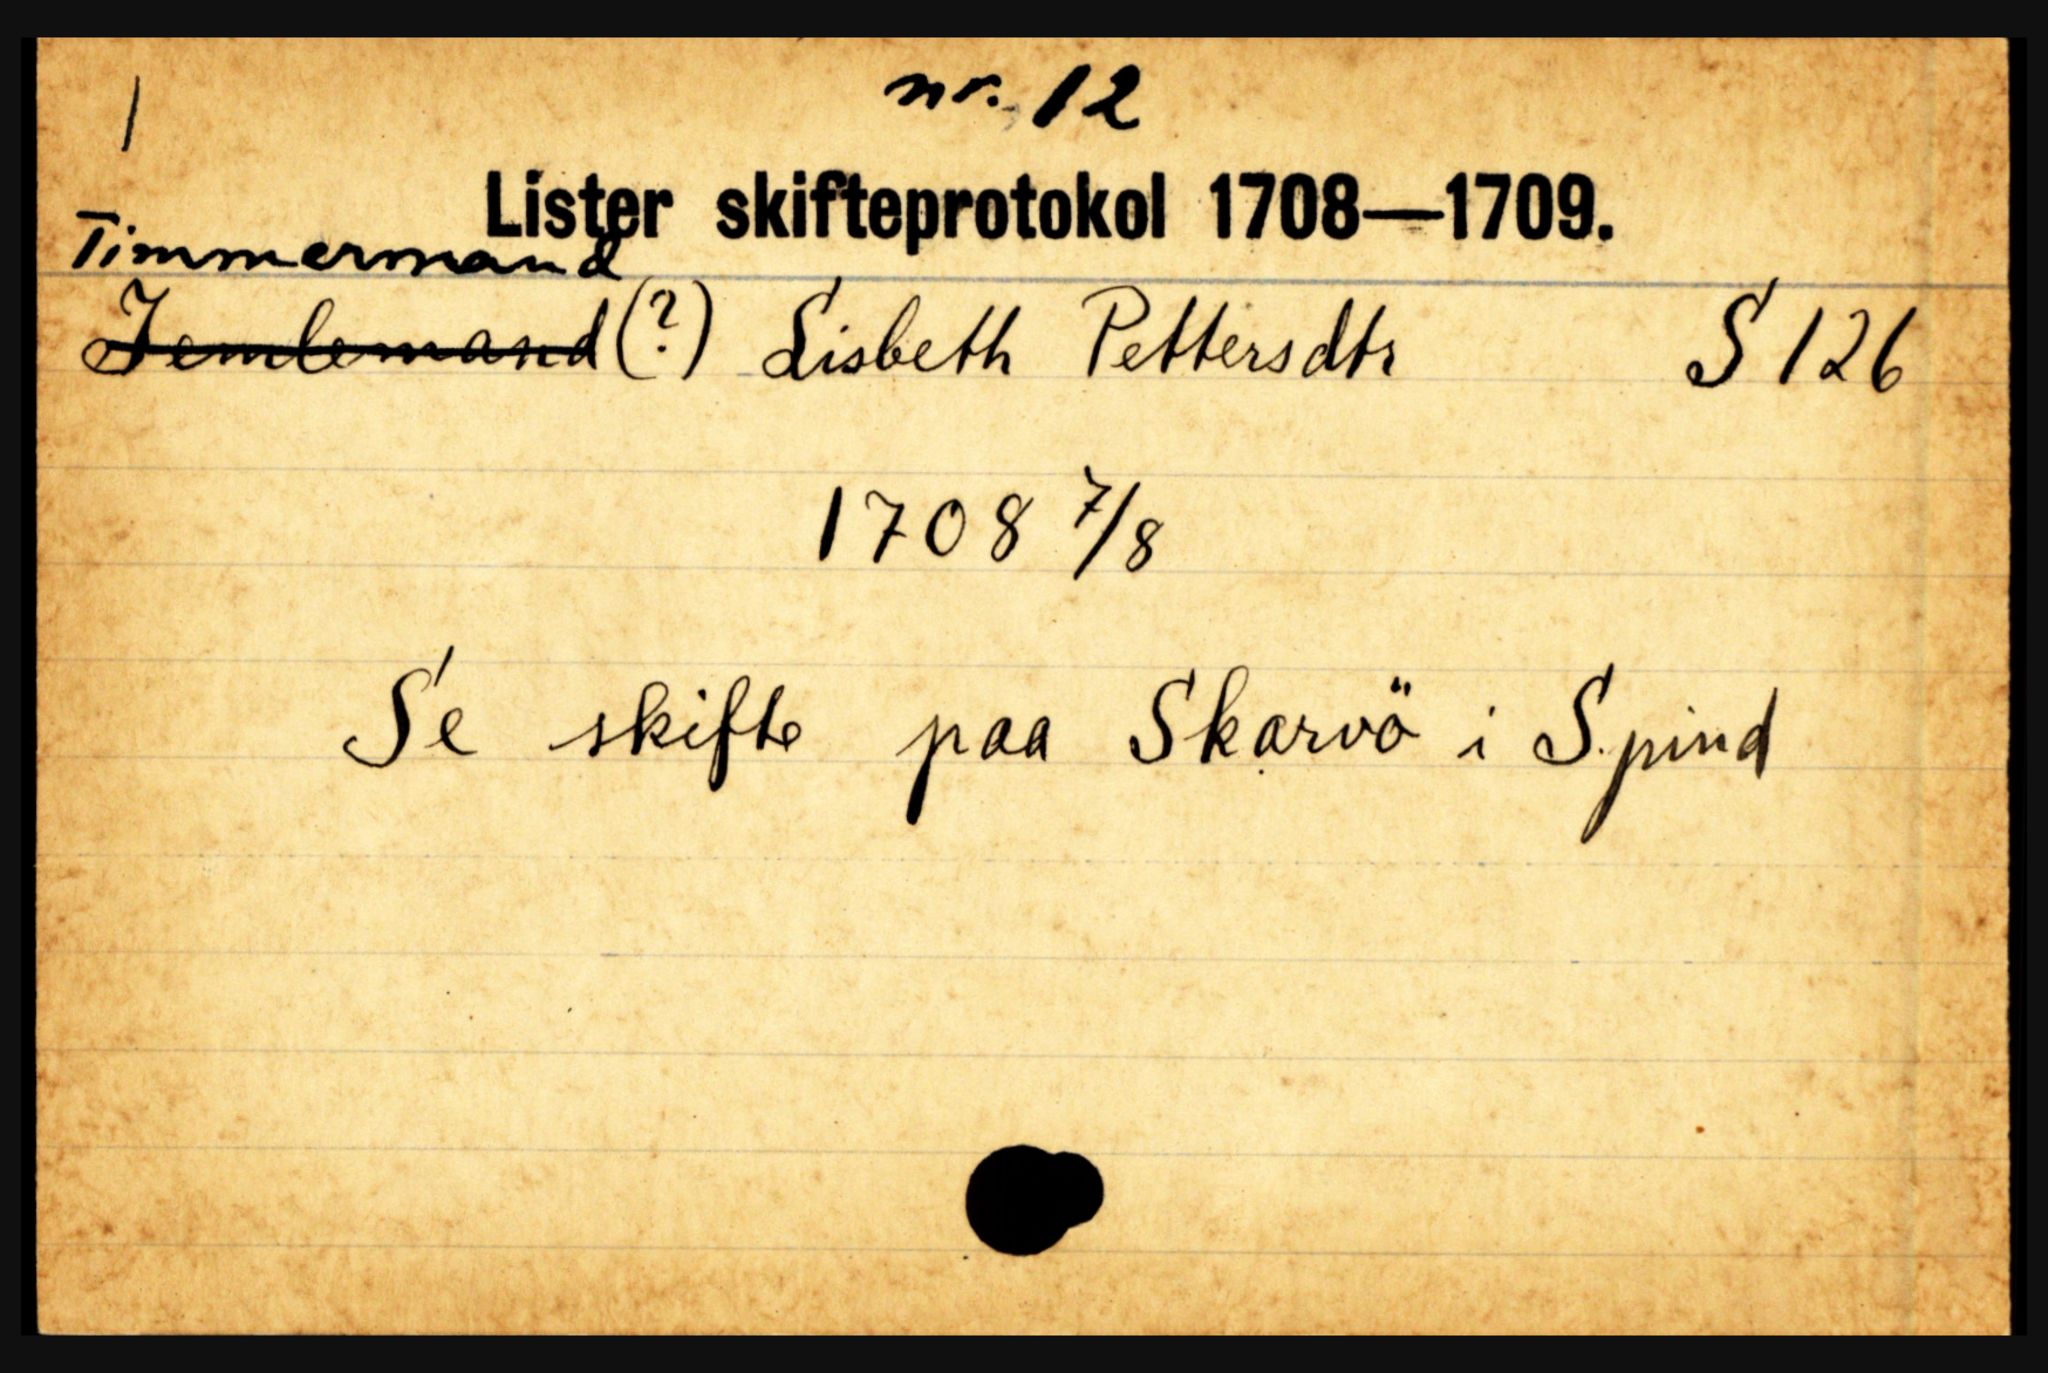 / nr. 12
Lister skifteprotokol 1708—1709.
Timmermand
Jemlemand (?) Lisbeth Pettersdtr S 126
1708 7/8
Se skifte paa Skarvö i Spind